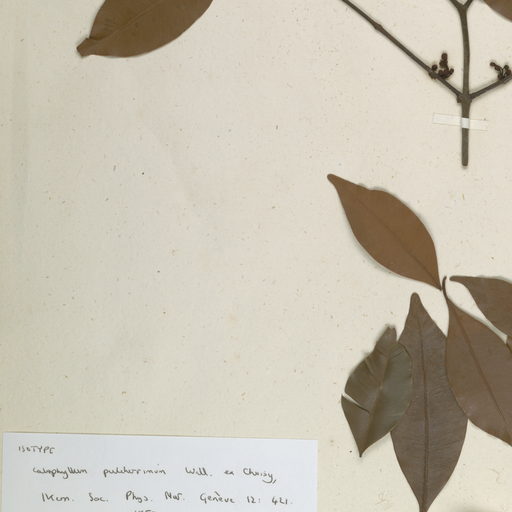 ISOTYPE
Calophyllum pulcherrimum Wall. ex Choisy,
Mem. Soc. Phys. Nat. Genève 12: 421.